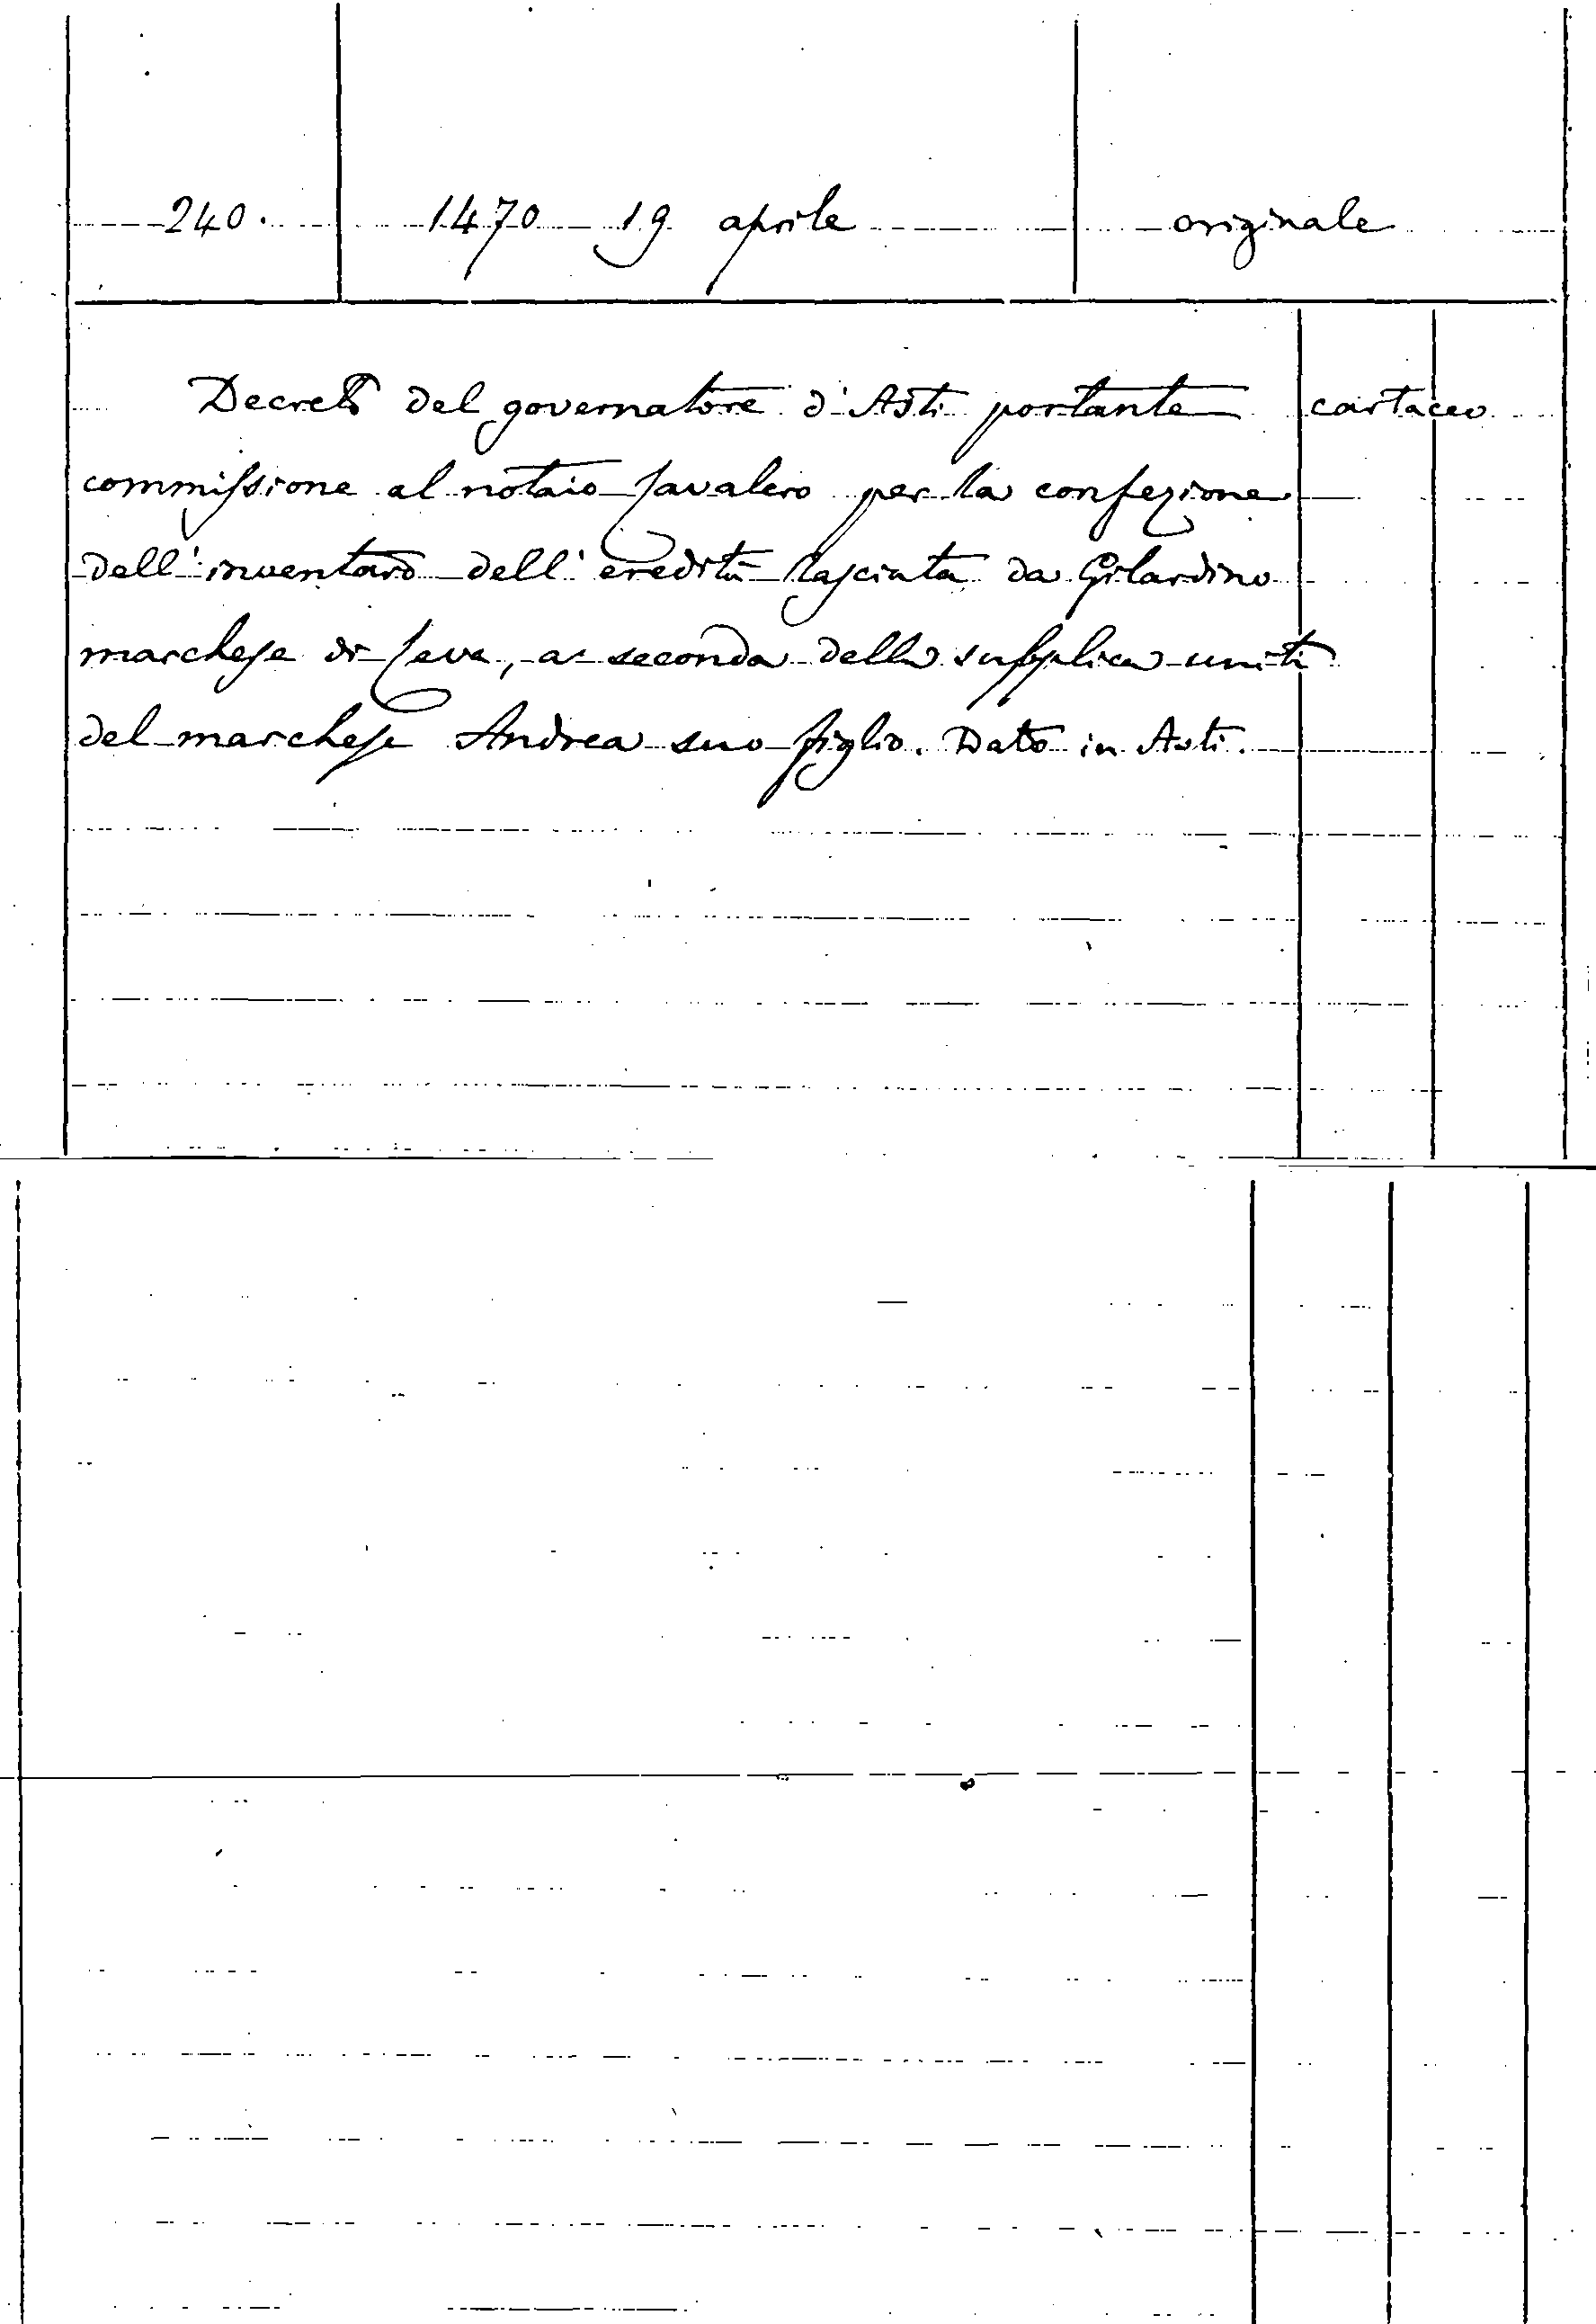 240. 1470 19 aprile originale
Decreto del governatore d'Asti portante cartaceo
commissione al notaio Cavalero per la confezione
dell'inventaro dell'eredità lasciata da Gilardino
marchese di Ceva, a seconda della supplica uniti
del marchese Andrea suo figlio. Dato in Asti.